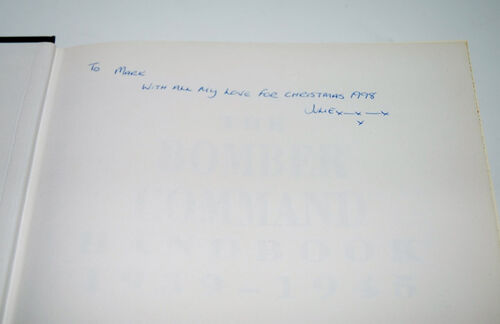 To MARK
WITH ALL MY LOVE FOR CHRISTMAS 1998
JULIE x—x—x
x
THE
BOMBER
COMMAND
HANDBOOK
1939–1945